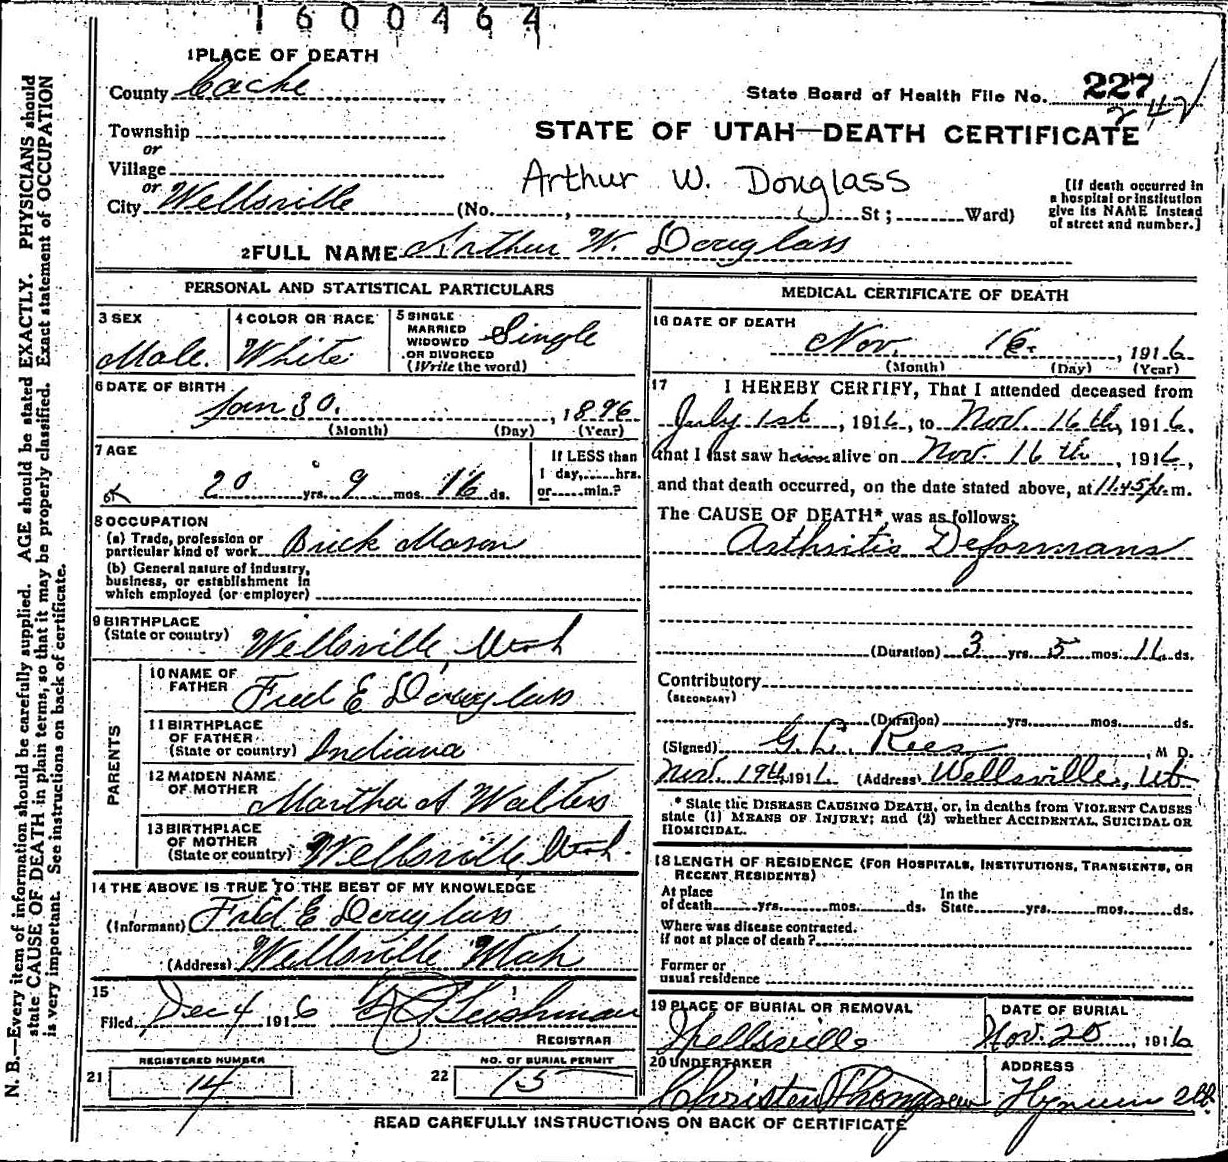 1600464
1 PLACE OF DEATH
County Cache
State Board of Health File No. 227
242
Township
or
Village
or
City Wellsville (No. , St ; Ward)
STATE OF UTAH—DEATH CERTIFICATE
Arthur W. Douglass
[If death occurred in
a hospital or institution
give its NAME instead
of street and number.]
2 FULL NAME Arthur W. Douglass
PERSONAL AND STATISTICAL PARTICULARS
3 SEX
Male.
4 COLOR OR RACE
White
5 SINGLE
MARRIED
WIDOWED
OR DIVORCED
(Write the word)
Single
6 DATE OF BIRTH
Jan 30. , 1896
(Month) (Day) (Year)
7 AGE
20 yrs. 9 mos. 16 ds.
If LESS than
1 day, hrs.
or min.?
8 OCCUPATION
(a) Trade, profession or
particular kind of work Brick Mason
(b) General nature of industry,
business, or establishment in
which employed (or employer)
9 BIRTHPLACE
(State or country) Wellsville, Utah
PARENTS
10 NAME OF
FATHER Fred E Douglass
11 BIRTHPLACE
OF FATHER
(State or country) Indiana
12 MAIDEN NAME
OF MOTHER Martha A Walters
13 BIRTHPLACE
OF MOTHER
(State or country) Wellsville, Utah.
14 THE ABOVE IS TRUE TO THE BEST OF MY KNOWLEDGE
(Informant) Fred E Douglass
(Address) Wellsville Utah
15
Filed Dec 4 1916
REGISTRAR
REGISTERED NUMBER
21 14
NO. OF BURIAL PERMIT
22 15
MEDICAL CERTIFICATE OF DEATH
16 DATE OF DEATH
Nov. 16. , 1916
(Month) (Day) (Year)
17 I HEREBY CERTIFY, That I attended deceased from
July 1st, 1916, to Nov. 16th, 1916.
that I last saw h alive on Nov. 16th, 1916,
and that death occurred, on the date stated above, at 11.45 p.m.
The CAUSE OF DEATH* was as follows:
Arthritis Deformans
(Duration) 3 yrs. 5 mos. 11 ds.
Contributory
(SECONDARY)
(Duration) yrs. mos. ds.
(Signed) G. L. Rees M D.
Nov. 19th 1916 (Address) Wellsville, Ut
* State the DISEASE CAUSING DEATH, or, in deaths from VIOLENT CAUSES
state (1) MEANS OF INJURY; and (2) whether ACCIDENTAL, SUICIDAL OR
HOMICIDAL.
18 LENGTH OF RESIDENCE (FOR HOSPITALS, INSTITUTIONS, TRANSIENTS, OR
RECENT RESIDENTS)
At place
of death yrs. mos. ds.
In the
State yrs. mos. ds.
Where was disease contracted.
if not at place of death?
Former or
usual residence
19 PLACE OF BURIAL OR REMOVAL
Wellsville
DATE OF BURIAL
Nov. 20 , 1916
20 UNDERTAKER
Christen Thompsen
ADDRESS
Hyrum
READ CAREFULLY INSTRUCTIONS ON BACK OF CERTIFICATE
N. B.—Every item of information should be carefully supplied. AGE should be stated EXACTLY. PHYSICIANS should
state CAUSE OF DEATH in plain terms, so that it may be properly classified. Exact statement of OCCUPATION
is very important. See instructions on back of certificate.